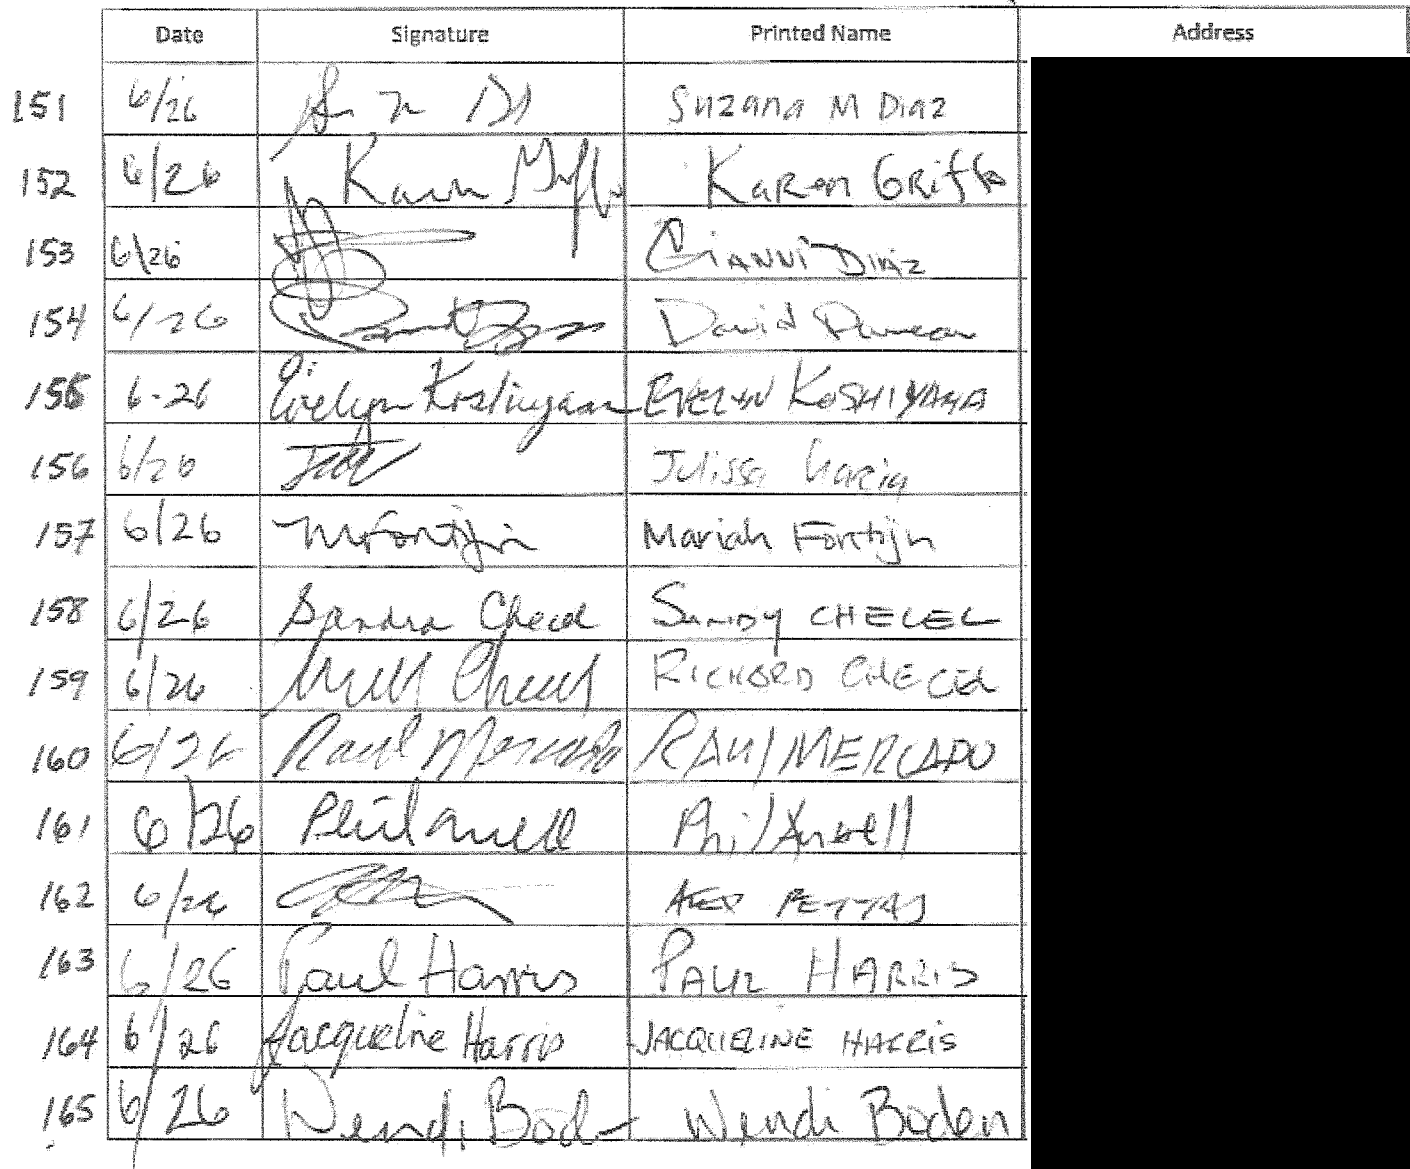 Date Signature Printed Name Address
151 6/26 Suzana M Diaz
152 6/26 Karen Griffo Karen Griffo
153 6/26 Gianni Diaz
154 6/26 David Duncan
155 6-26 Evelyn Koshiyama EVELYN KOSHIYAMA
156 6/26 Julissa Garcia
157 6/26 M Fortijn Mariah Fortijn
158 6/26 Sandra Checel Sandy CHECEL
159 6/26 Checel RICHARD CHECEL
160 6/26 Raul Mercado RAUL MERCADO
161 6/26 Phil Axtell Phil Axtell
162 6/26 ALEX PETTAS
163 6/26 Paul Harris PAUL HARRIS
164 6/26 Jacqueline Harris JACQUELINE HARRIS
165 6/26 Wendi Boden Wendi Boden